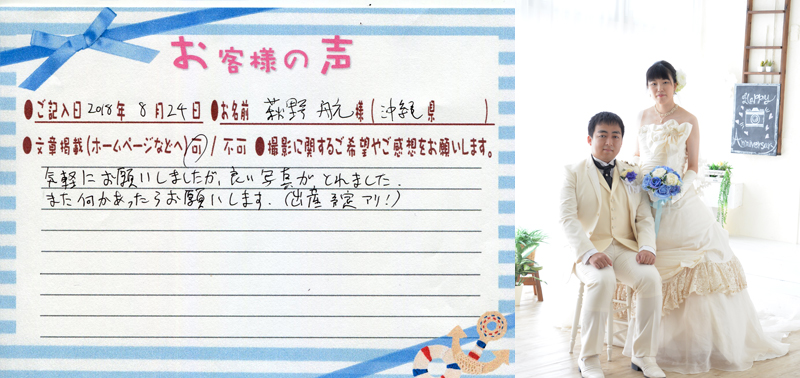 お客様の声
●ご記入日2018年 8月24日 ●お名前 萩野 様(沖縄県 )
●文章掲載(ホームページなどへ)可/不可 ●撮影に関するご希望やご感想をお願いします。
気軽にお願いしましたが、良い写真がとれました.
また何かあったらお願いします. (出産予定アリ!)
Anniversary